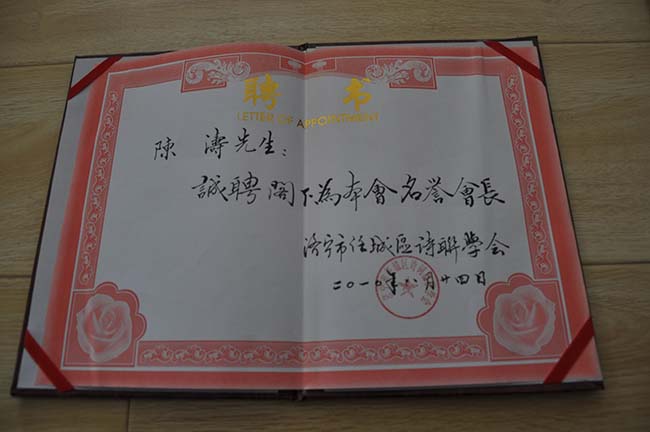 聘 书
LETTER OF APPOINTMENT
陳 濤先生：
誠聘閣下為本會名誉會長
济宁市任城區诗联學会
二〇一〇年八月廿四日